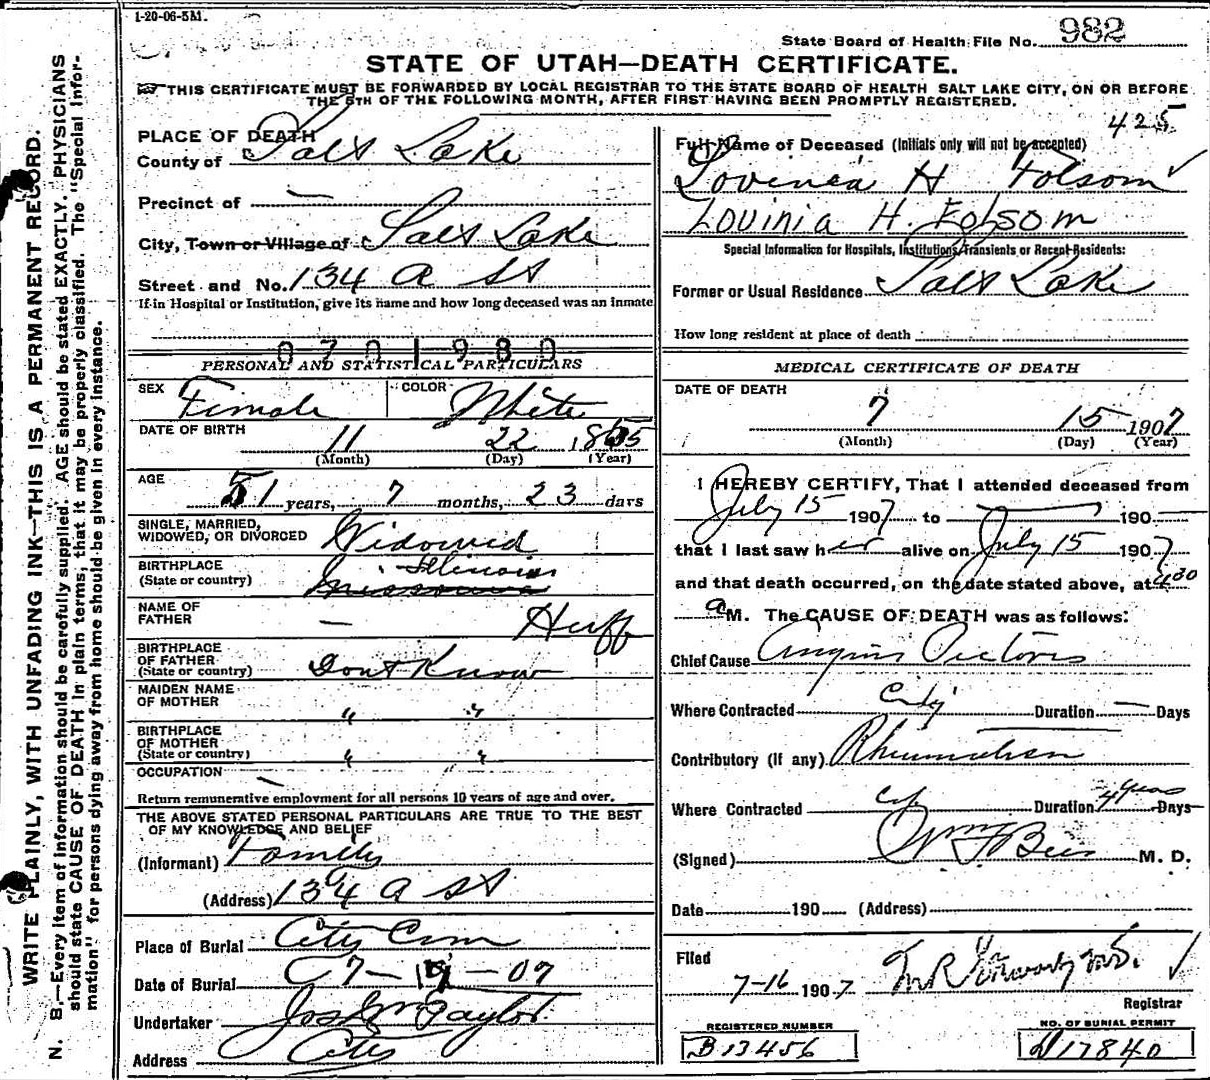 1-20-06-5M.
State Board of Health File No. 982
STATE OF UTAH—DEATH CERTIFICATE.
THIS CERTIFICATE MUST BE FORWARDED BY LOCAL REGISTRAR TO THE STATE BOARD OF HEALTH SALT LAKE CITY, ON OR BEFORE
THE 5TH OF THE FOLLOWING MONTH, AFTER FIRST HAVING BEEN PROMPTLY REGISTERED.
WRITE PLAINLY, WITH UNFADING INK—THIS IS A PERMANENT RECORD.
N. B.—Every item of information should be carefully supplied. AGE should be stated EXACTLY. PHYSICIANS
should state CAUSE OF DEATH in plain terms, that it may be properly classified. The "Special Infor-
mation" for persons dying away from home should be given in every instance.
PLACE OF DEATH
County of Salt Lake
Precinct of —
City, Town or Village of Salt Lake
Street and No. 134 A St
If in Hospital or Institution, give its name and how long deceased was an inmate
0701980
PERSONAL AND STATISTICAL PARTICULARS
SEX Female COLOR White
DATE OF BIRTH 11 22 1855
(Month) (Day) (Year)
AGE 51 years, 7 months, 23 days
SINGLE, MARRIED,
WIDOWED, OR DIVORCED Widowed
BIRTHPLACE Illinois
(State or country) Missouri
NAME OF
FATHER — Huff
BIRTHPLACE
OF FATHER
(State or country) Dont Know
MAIDEN NAME
OF MOTHER " "
BIRTHPLACE
OF MOTHER
(State or country) " "
OCCUPATION —
Return remunerative employment for all persons 10 years of age and over.
THE ABOVE STATED PERSONAL PARTICULARS ARE TRUE TO THE BEST
OF MY KNOWLEDGE AND BELIEF
(Informant) Family
(Address) 134 A St
Place of Burial City Cem
Date of Burial 7—17—07
Undertaker Jos Wm Taylor
Address City
425
Full Name of Deceased (Initials only will not be accepted)
Lovinea H Folsom
Louinia H. Folsom
Special Information for Hospitals, Institutions, Transients or Recent Residents:
Former or Usual Residence Salt Lake
How long resident at place of death
MEDICAL CERTIFICATE OF DEATH
DATE OF DEATH
7 15 1907
(Month) (Day) (Year)
I HEREBY CERTIFY, That I attended deceased from
July 15 1907 to — 190 —
that I last saw her alive on July 15 1907
and that death occurred, on the date stated above, at 4 30
a M. The CAUSE OF DEATH was as follows:
Chief Cause Angina Pectoris
Where Contracted City Duration — Days
Contributory (if any) Rheumatism
Where Contracted City Duration 4 years Days
(Signed) M. D.
Date 190 (Address)
Filed
7-16 1907
Registrar
REGISTERED NUMBER
B 13456
NO. OF BURIAL PERMIT
D 17840